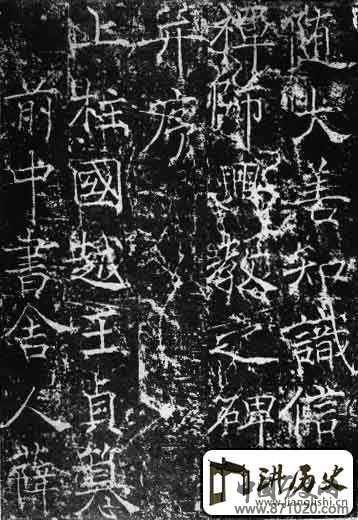 随大善知識信
禪師興教之碑
并序
上柱國越王貞篆
前中書舍人薛
讲历史
www.jianglishi.cn
www.871020.com